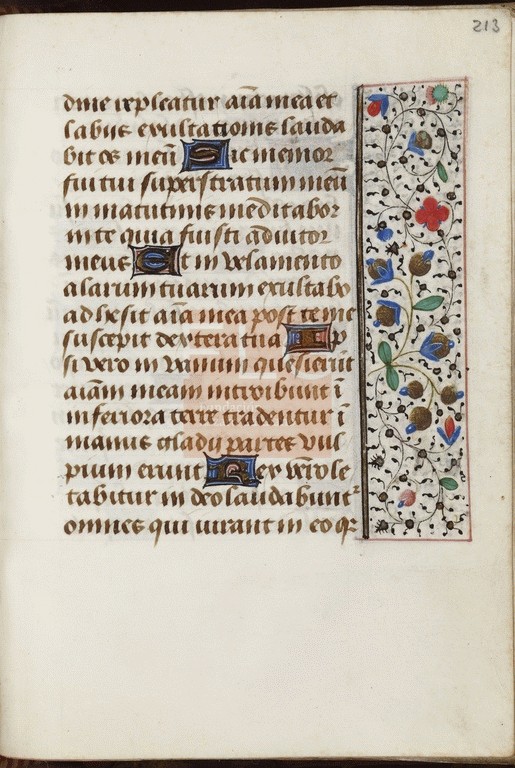 213
dine repleatur aīa mea et
labijs exultationis lauda
bit os meū Sic memor
fui tui super stratum meū
in matutinis meditabor
in te quia fuisti adiutor
meus Et in velamento
alarum tuarum exultabo
adhesit aīa mea post te me
suscepit dextera tua Ip
si vero in vanum quesierūt
aīam meam introibunt ī
inferiora terre tradentur ī
manus gladij partes vul
pium erunt Rex vero le
tabitur in deo laudabunt
omnes qui iurant in eo qꝛ